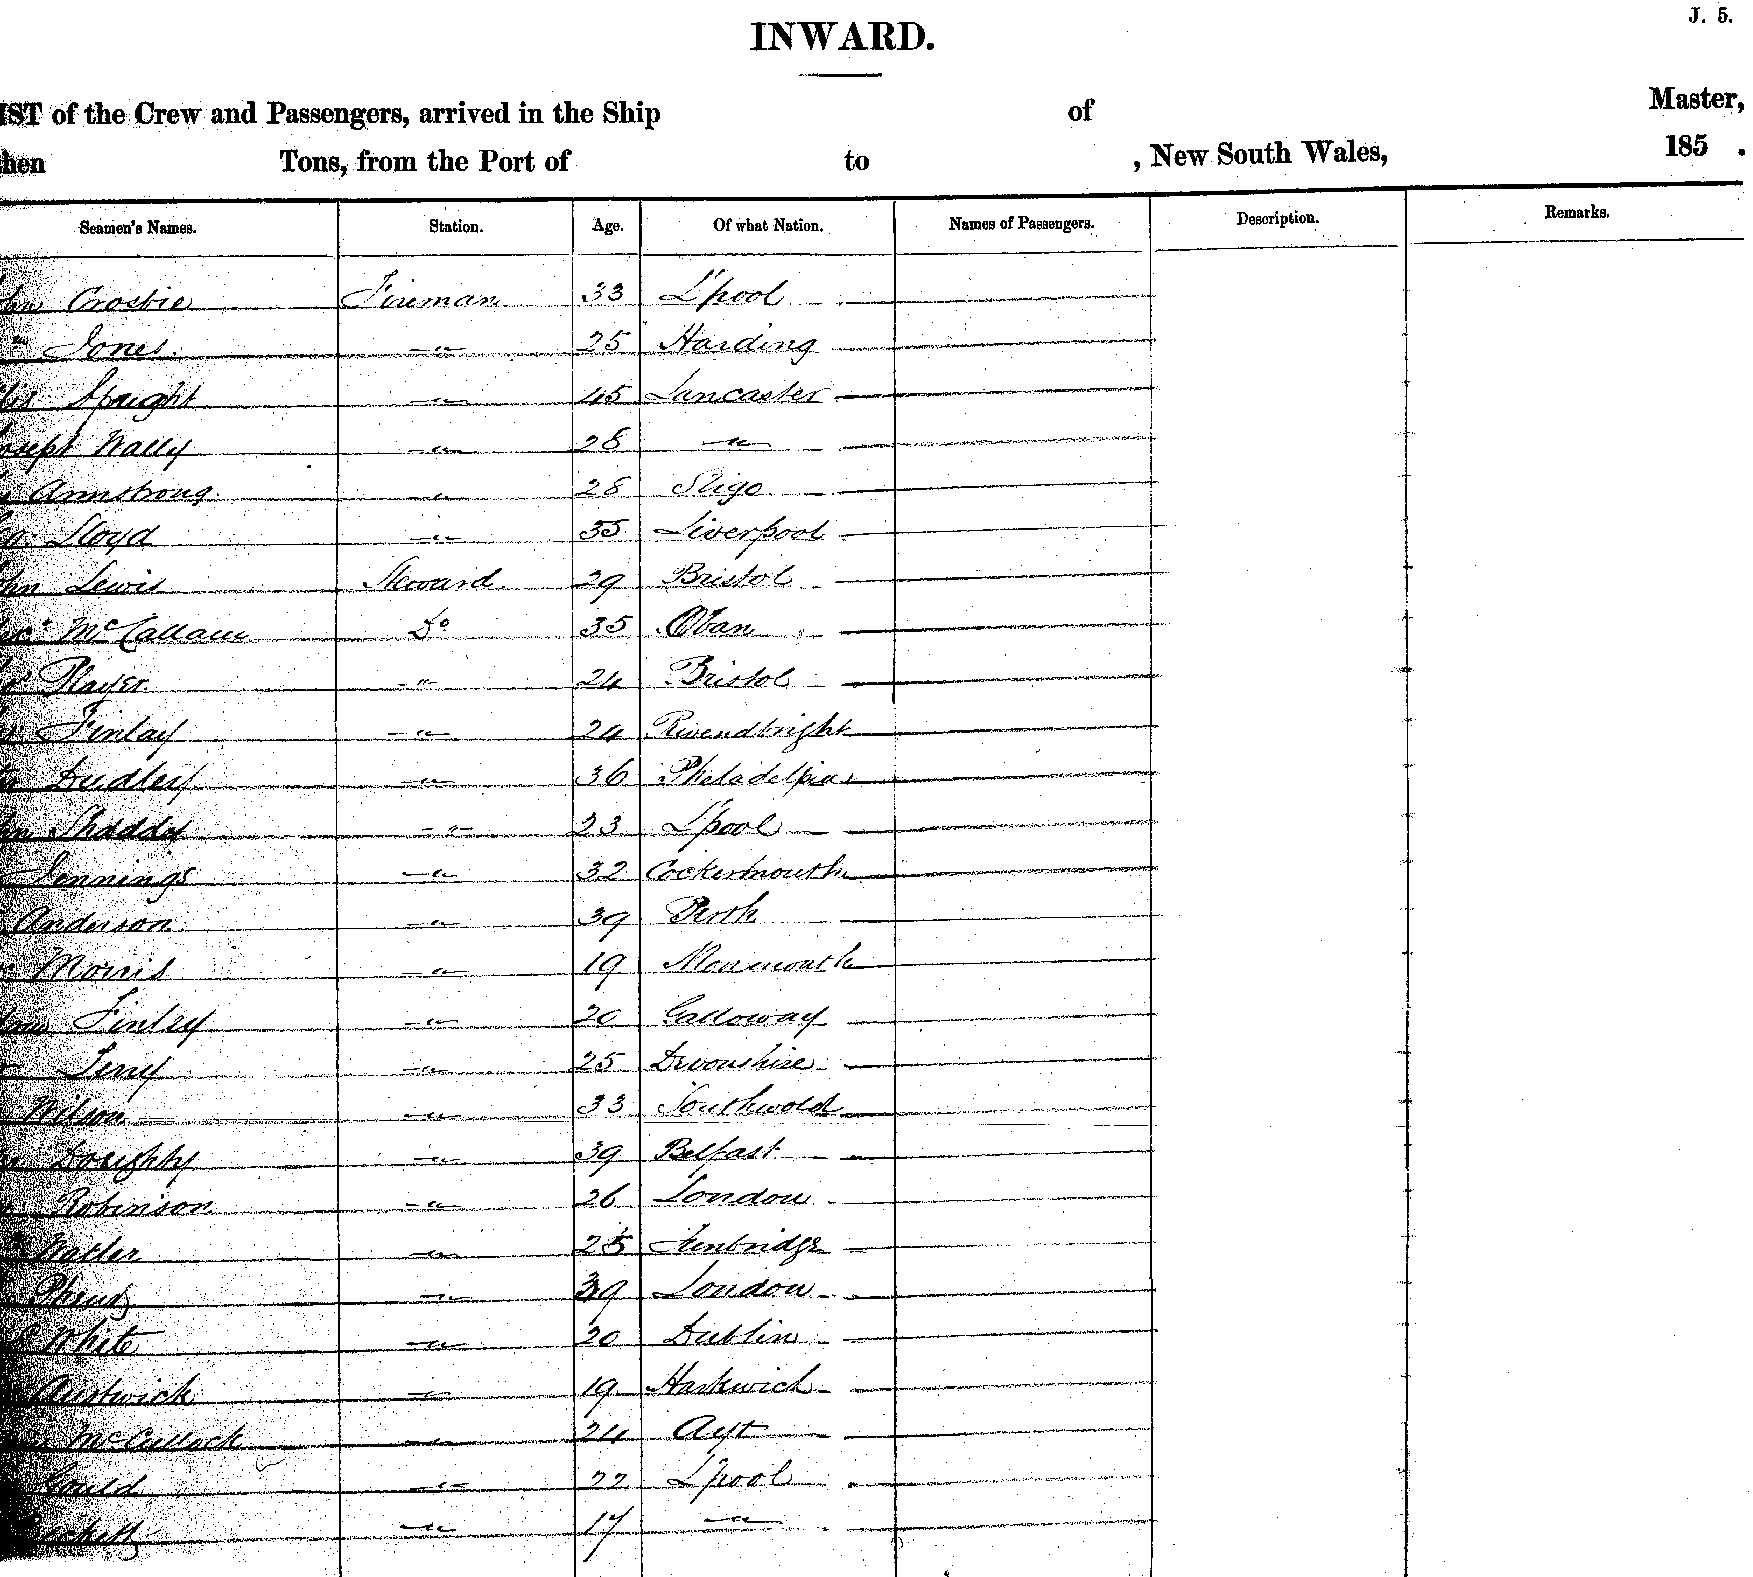 J. 5.
INWARD.
IST of the Crew and Passengers, arrived in the Ship of Master,
hen Tons, from the Port of to , New South Wales, 185 .
Seamen's Names. Station. Age. Of what Nation. Names of Passengers. Description. Remarks.
hn Crosbie Fireman 33 L'pool
Jones 25 Harding
Speight " 45 Lancaster
oseph Wally " 28 "
Armstrong " 28 Sligo
Lloyd " 35 Liverpool
hn Lewis Steward 29 Bristol
McCallum Do 35 Oban
Player " 24 Bristol
Finlay " 24 Rivendbright
Dudley " 36 Pheladelpia
hn Shaddy " 23 L'pool
Jennings " 32 Cockermouth
Anderson " 39 Perth
Morris " 19 Monmouth
Finley " 20 Galloway
Terry " 25 Devonshire
Wilson " 33 Southwold
Doughty " 39 Belfast
Robinson " 26 London
Waller " 25 Tenbridge
" 39 London
White " 20 Dublin
Austwick " 19 Hartwich
McCullock " 24 Ayr
Gould " 22 L'pool
" 17 "